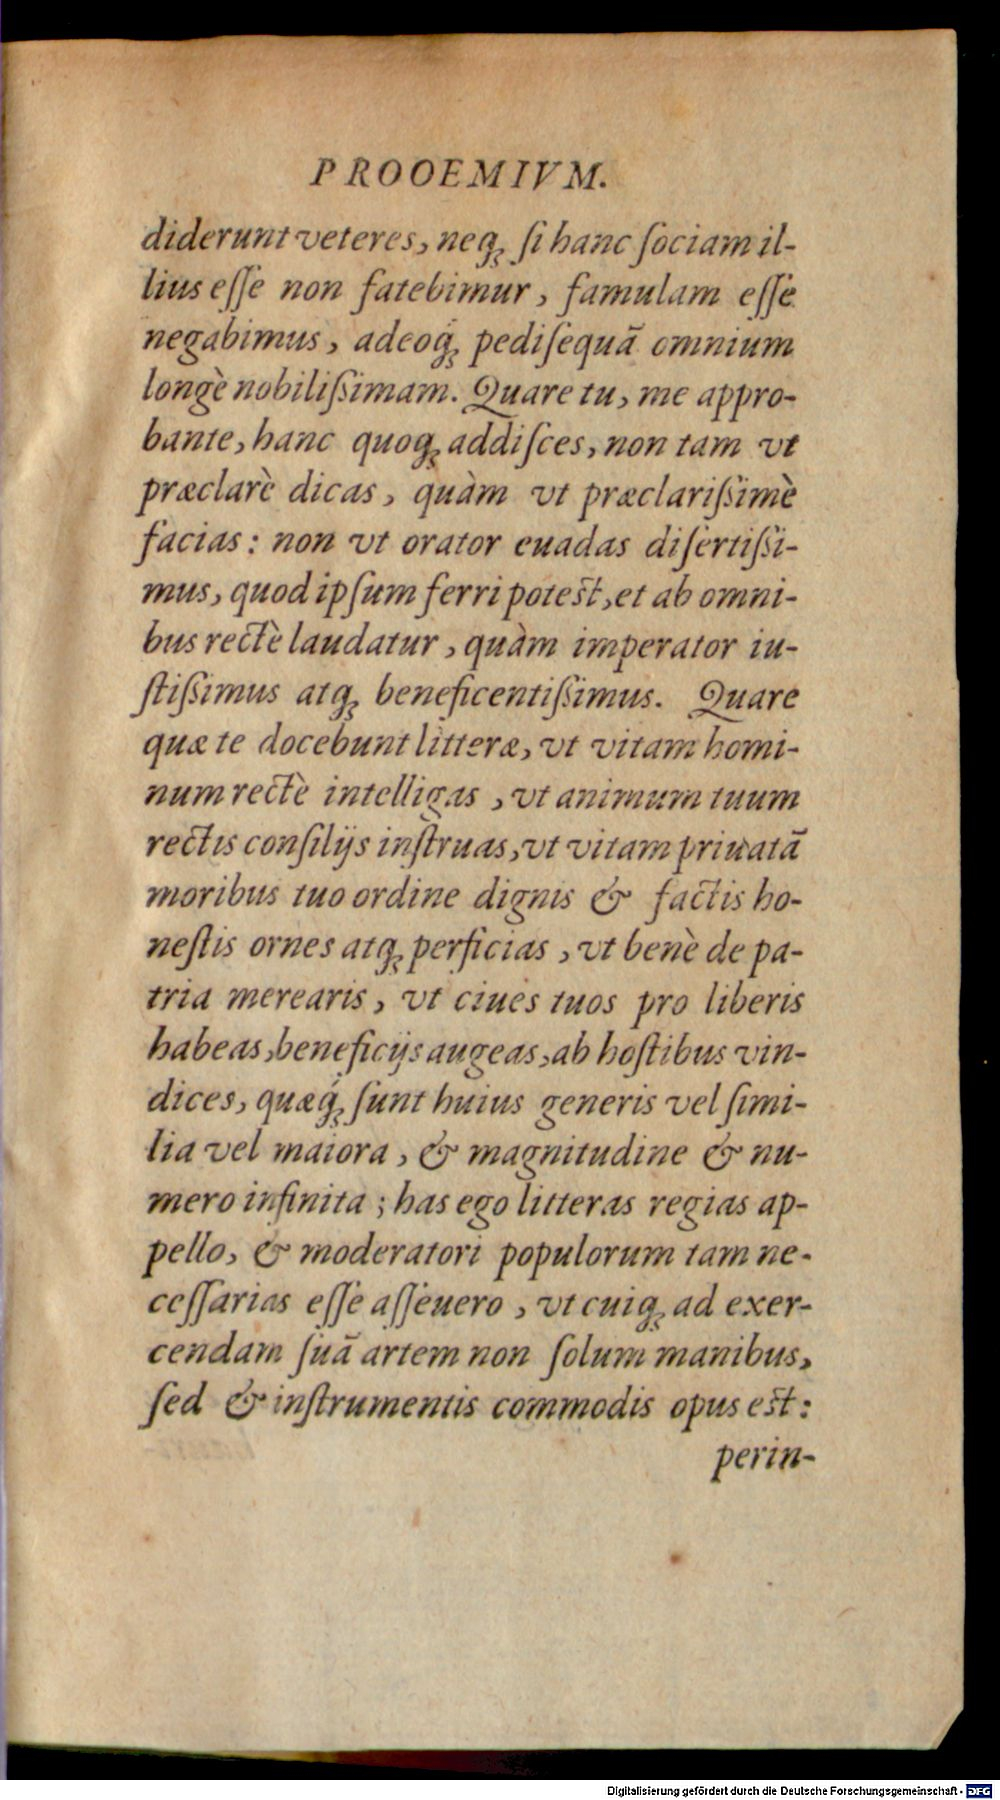 PROOEMIVM.
diderunt veteres, neq; ſi hanc ſociam il-
lius eſſe non fatebimur, famulam eſſe
negabimus, adeoq́; pediſequã omnium
longè nobiliſsimam. Quare tu, me appro-
bante, hanc quoq; addiſces, non tam vt
præclarè dicas, quàm vt præclariſsimè
facias: non vt orator euadas diſertiſsi-
mus, quod ipſum ferri poteſt, et ab omni-
bus rectè laudatur, quàm imperator iu-
ſtiſsimus atq; beneficentiſsimus. Quare
quæ te docebunt litteræ, vt vitam homi-
num rectè intelligas, vt animum tuum
rectis conſilijs inſtruas, vt vitam priuatã
moribus tuo ordine dignis & factis ho-
neſtis ornes atq; perficias, vt benè de pa-
tria merearis, vt ciues tuos pro liberis
habeas, beneficijs augeas, ab hoſtibus vin-
dices, quæq́; ſunt huius generis vel ſimi-
lia vel maiora, & magnitudine & nu-
mero infinita; has ego litteras regias ap-
pello, & moderatori populorum tam ne-
ceſſarias eſſe aſſeuero, vt cuiq; ad exer-
cendam ſuã artem non ſolum manibus,
ſed & inſtrumentis commodis opus eſt:
perin-
Digitalisierung gefördert durch die Deutsche Forschungsgemeinschaft - DFG